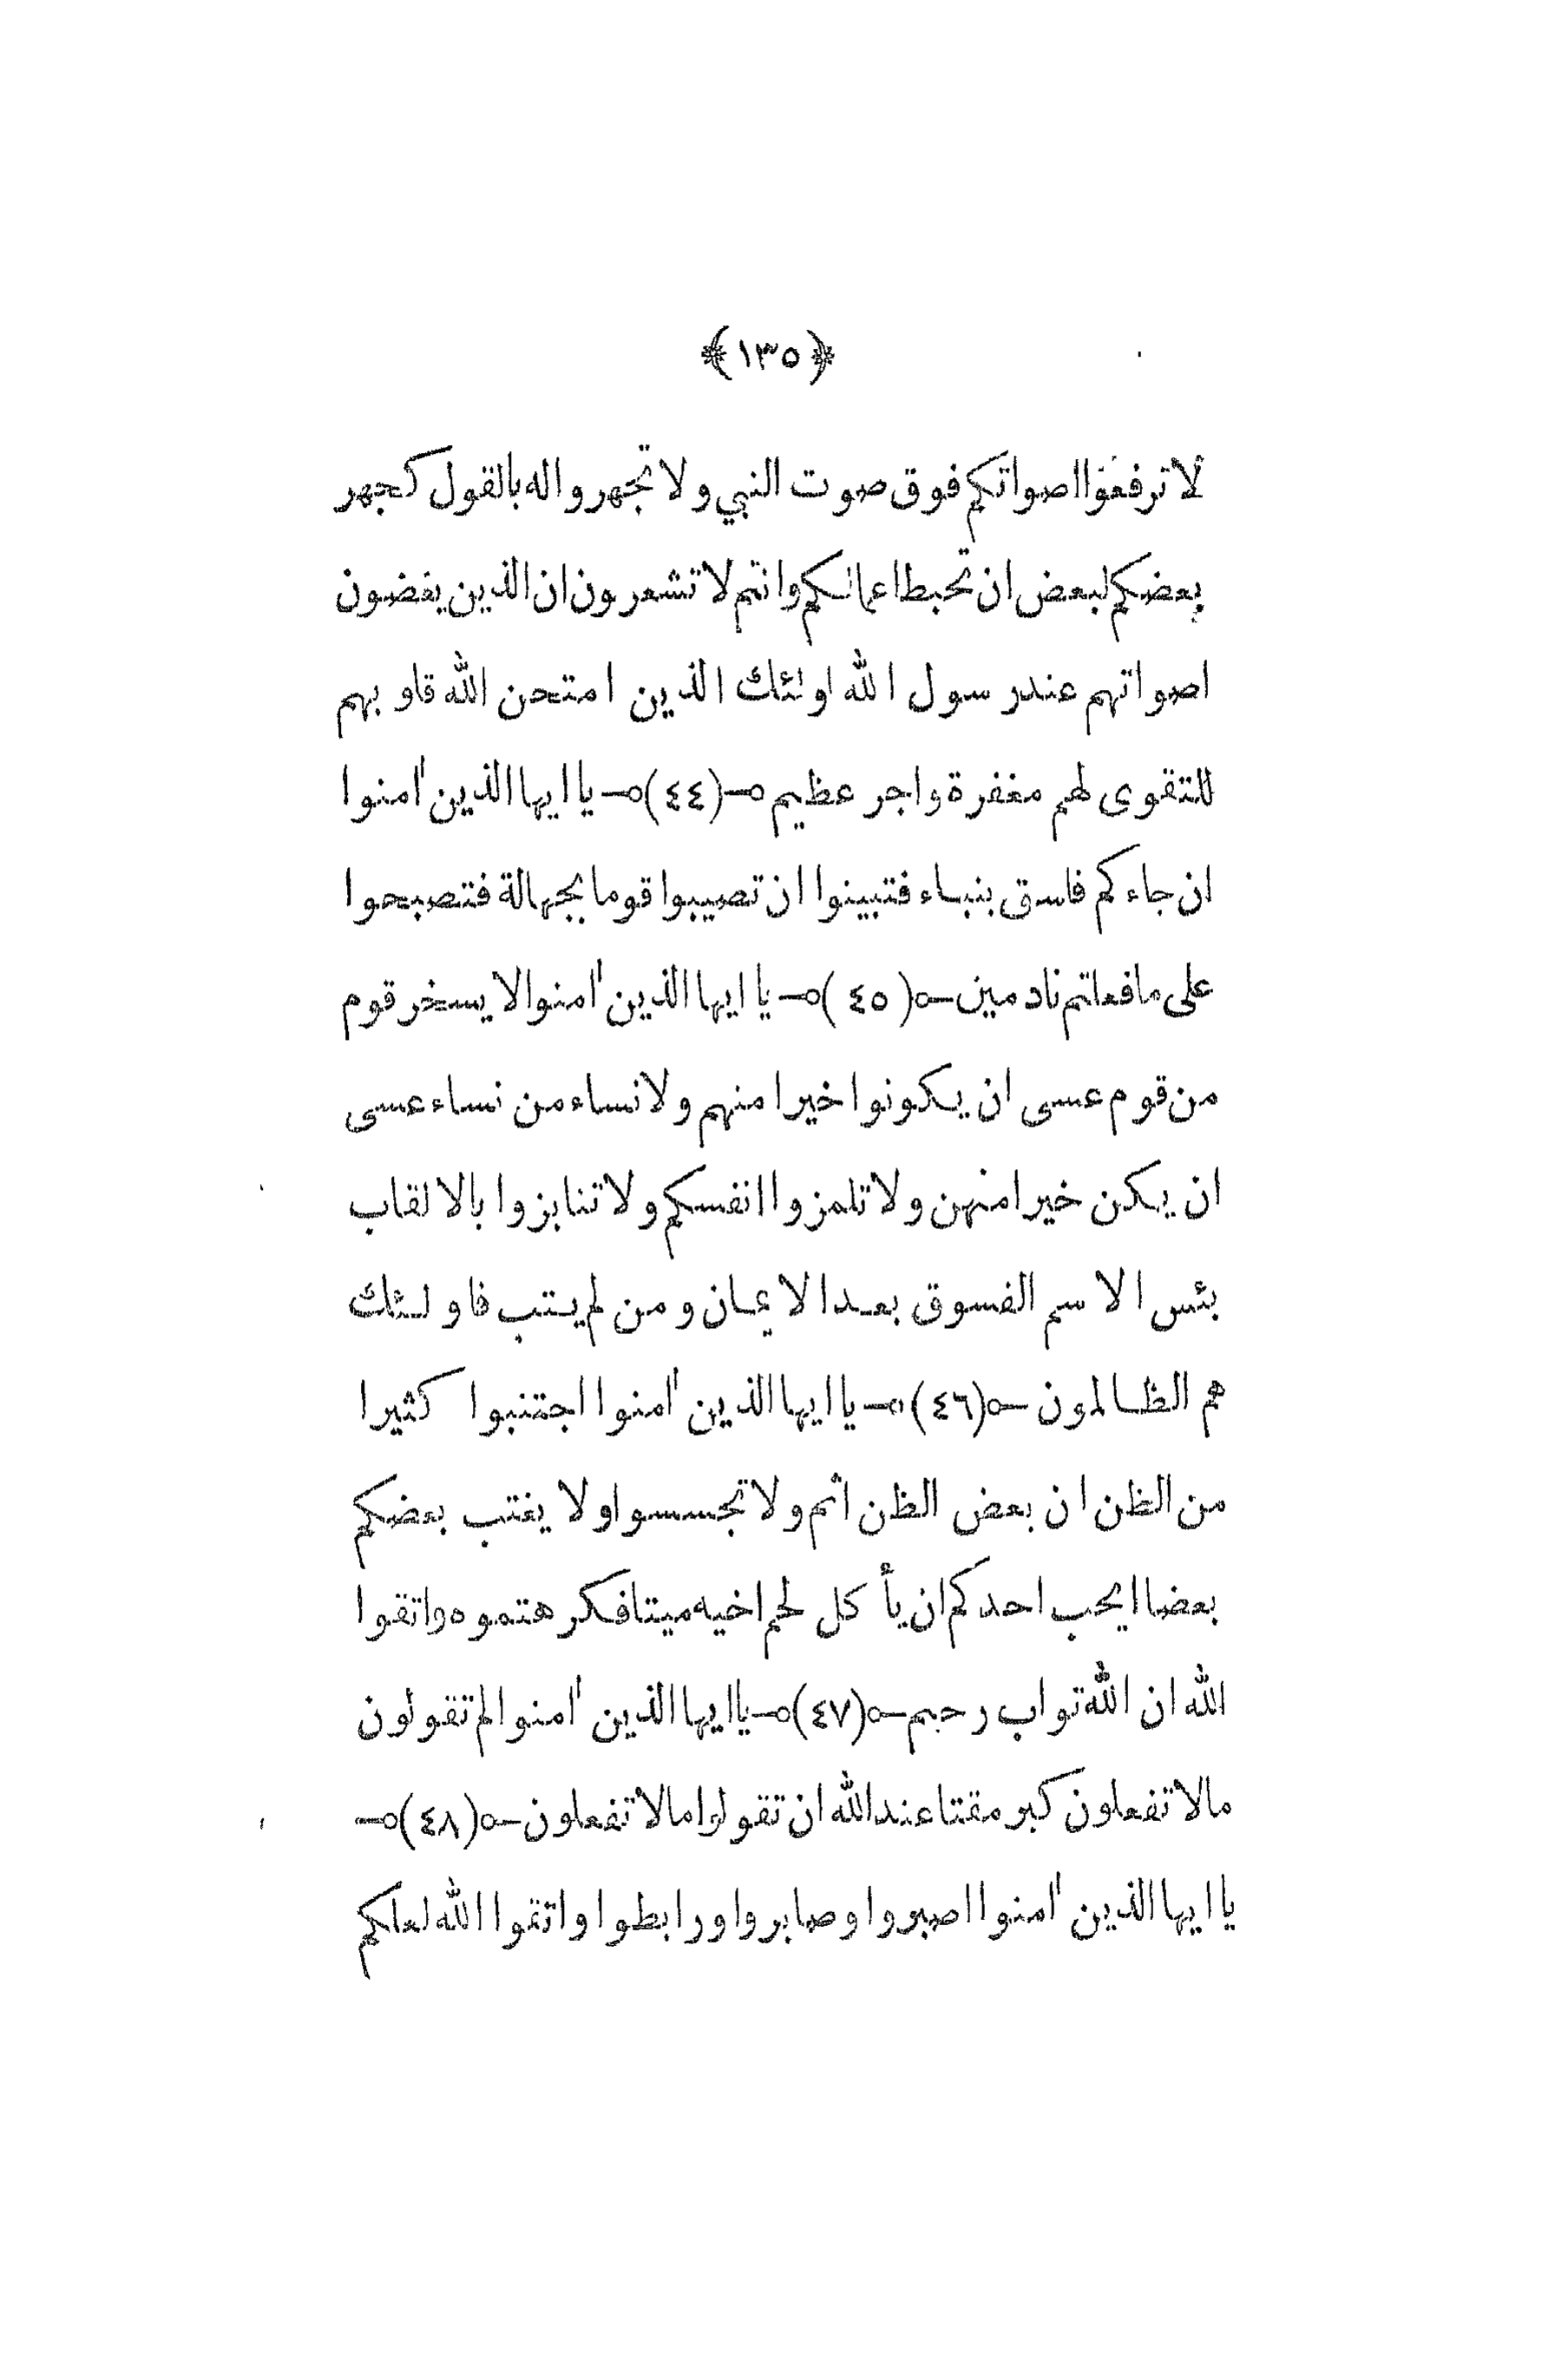 ﴿١٣٥﴾
لا ترفعوا اصواتكم فوق صوت النبي ولا تجهروا له بالقول كجهر
بعضكم لبعض ان تحبط اعمالكم وانتم لا تشعرون ان الذين يغضون
اصواتهم عند رسول الله اولئك الذين امتحن الله قلوبهم
للتقوى لهم مغفرة واجر عظيم (٤٤) يا ايها الذين اٰمنوا
ان جاءكم فاسق بنباء فتبينوا ان تصيبوا قوما بجهالة فتصبحوا
على ما فعلتم نادمين (٤٥) يا ايها الذين اٰمنوا لا يسخر قوم
من قوم عسى ان يكونوا خيرا منهم ولا نساء من نساء عسى
ان يكن خيرا منهن ولا تلمزوا انفسكم ولا تنابزوا بالالقاب
بئس الاسم الفسوق بعد الايمان ومن لم يتب فاولئك
هم الظالمون (٤٦) يا ايها الذين اٰمنوا اجتنبوا كثيرا
من الظن ان بعض الظن اثم ولا تجسسوا ولا يغتب بعضكم
بعضا ايحب احدكم ان يأكل لحم اخيه ميتا فكرهتموه واتقوا
الله ان الله تواب رحيم (٤٧) يا ايها الذين اٰمنوا لم تقولون
مالا تفعلون كبر مقتا عند الله ان تقولوا مالا تفعلون (٤٨)
يا ايها الذين اٰمنوا اصبروا وصابروا ورابطوا واتقوا الله لعلكم